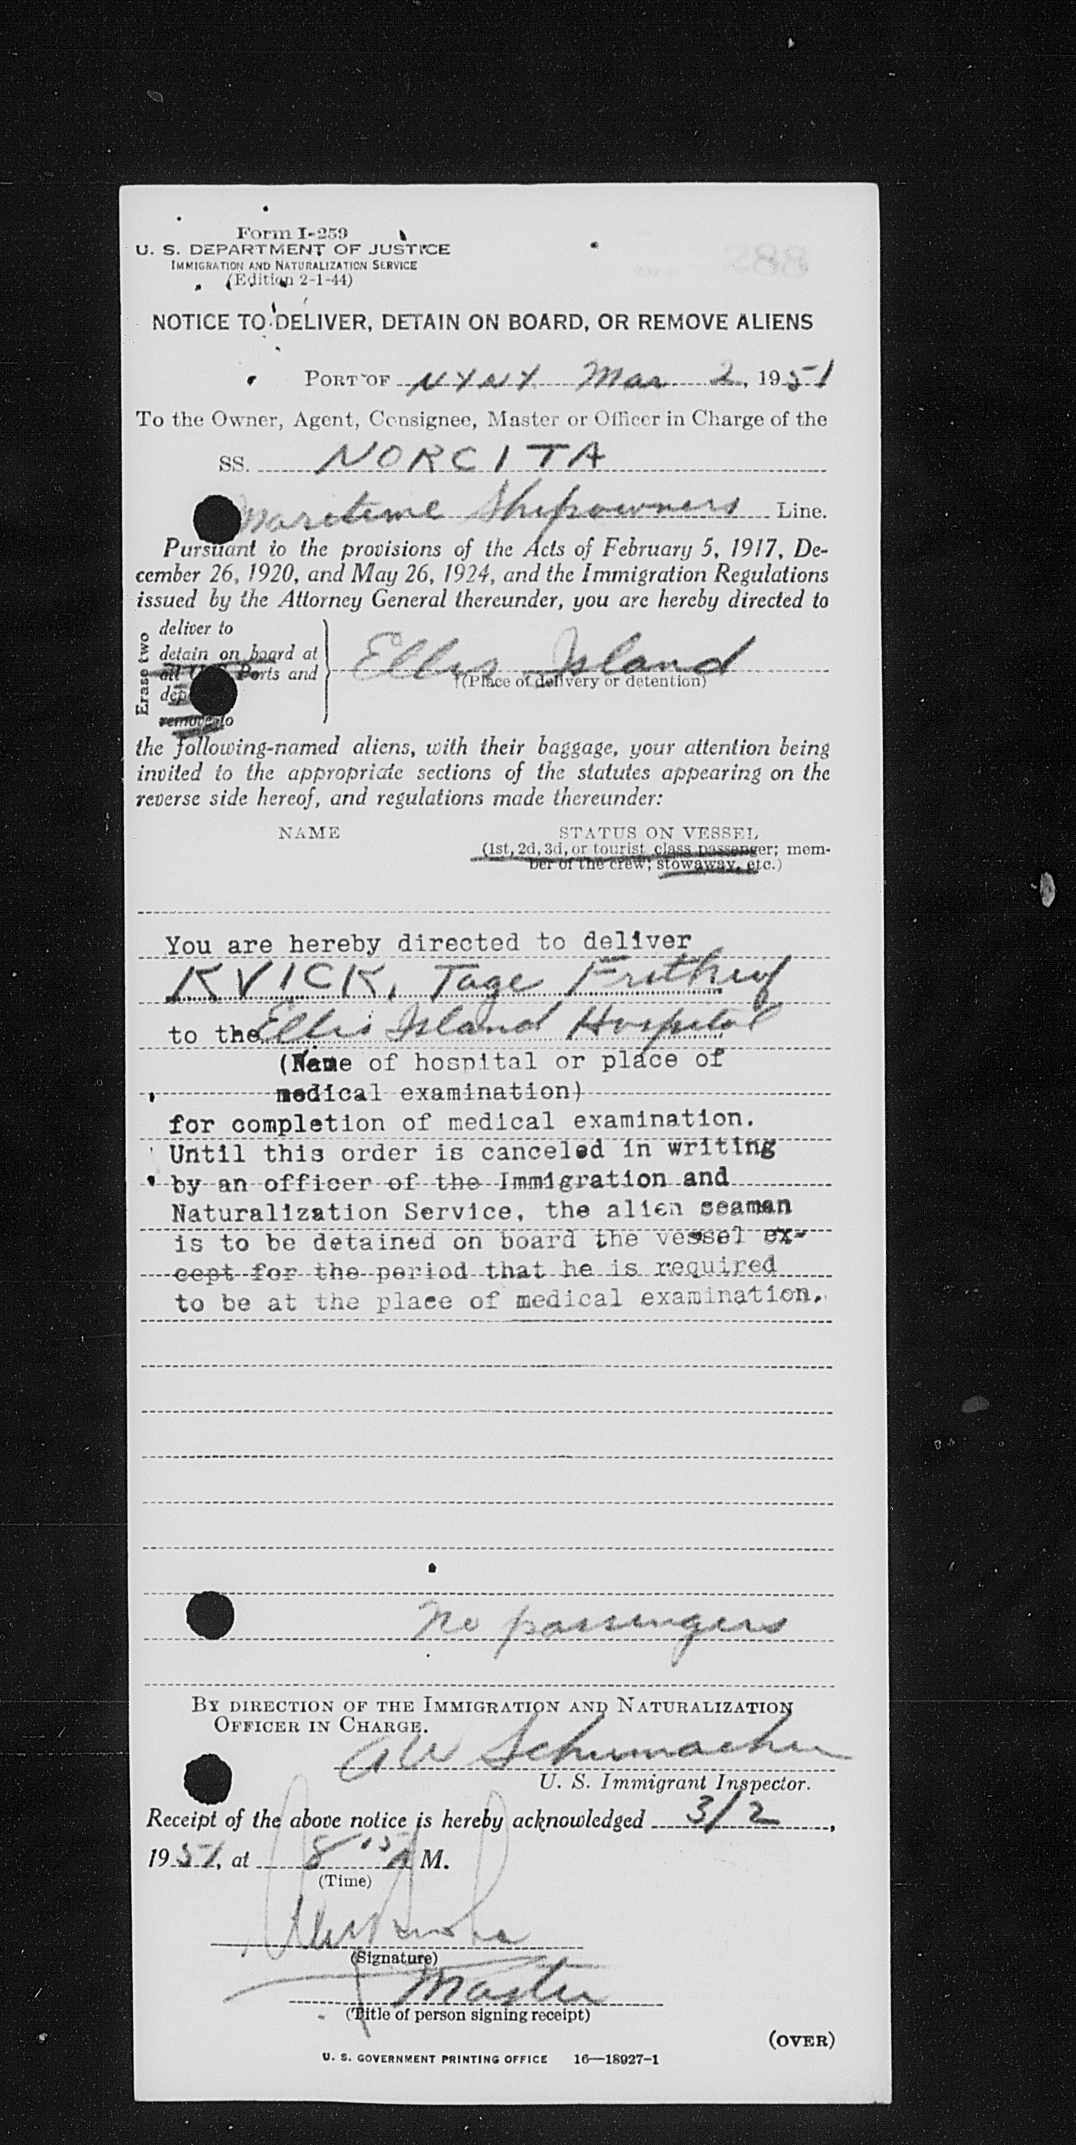 Form I-259
U. S. DEPARTMENT OF JUSTICE
IMMIGRATION AND NATURALIZATION SERVICE
(Edition 2-1-44)
NOTICE TO DELIVER, DETAIN ON BOARD, OR REMOVE ALIENS
PORT OF NYNY Mar 2, 1951
To the Owner, Agent, Consignee, Master or Officer in Charge of the
SS. NORCITA
Maritime Shipowners Line.
Pursuant to the provisions of the Acts of February 5, 1917, De-
cember 26, 1920, and May 26, 1924, and the Immigration Regulations
issued by the Attorney General thereunder, you are hereby directed to
Erase two
deliver to
detain on board at
all U. S. Ports and
remove to
Ellis Island
(Place of delivery or detention)
the following-named aliens, with their baggage, your attention being
invited to the appropriate sections of the statutes appearing on the
reverse side hereof, and regulations made thereunder:
NAME STATUS ON VESSEL
(1st, 2d, 3d, or tourist class passenger; mem-
ber of the crew; stowaway, etc.)
You are hereby directed to deliver
KVICK, Tage Frithiof
to the Ellis Island Hospital
(Name of hospital or place of
medical examination)
for completion of medical examination.
Until this order is canceled in writing
by an officer of the Immigration and
Naturalization Service, the alien seaman
is to be detained on board the vessel ex-
cept for the period that he is required
to be at the place of medical examination.
No passengers
BY DIRECTION OF THE IMMIGRATION AND NATURALIZATION
OFFICER IN CHARGE.
A W Schumacher
U. S. Immigrant Inspector.
Receipt of the above notice is hereby acknowledged 3/2,
1951, at 8 15 A M.
(Time)
(Signature)
Master
(Title of person signing receipt)
(OVER)
U. S. GOVERNMENT PRINTING OFFICE 16—18927-1